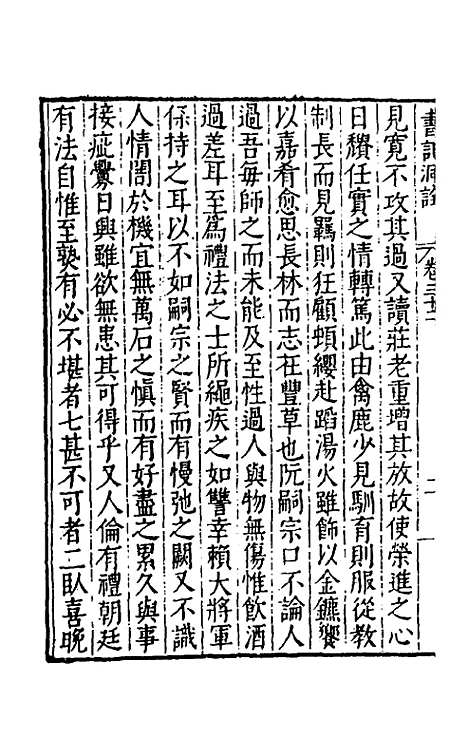 書記洞詮 卷三十一 二
見寬不攻其過又讀莊老重增其放故使榮進之心
日穨任實之情轉篤此由禽鹿少見馴育則服從教
制長而見羈則狂顧頓纓赴蹈湯火雖飾以金鑣饗
以嘉肴愈思長林而志在豐草也阮嗣宗口不論人
過吾每師之而未能及至性過人與物無傷惟飲酒
過差耳至爲禮法之士所繩疾之如讐幸賴大將軍
保持之耳以不如嗣宗之賢而有慢弛之闕又不識
人情闇於機宜無萬石之慎而有好盡之累久與事
接疵釁日興雖欲無患其可得乎又人倫有禮朝廷
有法自惟至孰有必不堪者七甚不可者二臥喜晚